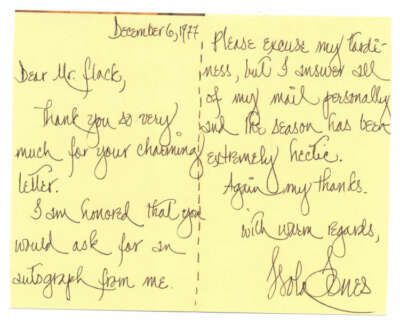 December 6, 1977
Dear Mr. Flack,
Thank you so very
much for your charming
letter.
I am honored that you
would ask for an
autograph from me.
Please excuse my tardi-
ness, but I answer all
of my mail personally
and the season has been
extremely hectic.
Again my thanks.
With warm regards,
Isola Jones